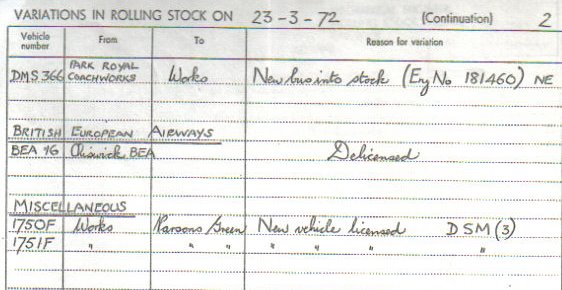 VARIATIONS IN ROLLING STOCK ON 23-3-72 (Continuation) 2
Vehicle number From To Reason for variation
DMS 366 PARK ROYAL COACHWORKS Works New bus into stock (Eng No 181460) NE
BRITISH EUROPEAN AIRWAYS
BEA 46 Chiswick BEA Delicensed
MISCELLANEOUS
1750F Works Parsons Green New vehicle licensed DSM (3)
1751F " " " " " " "